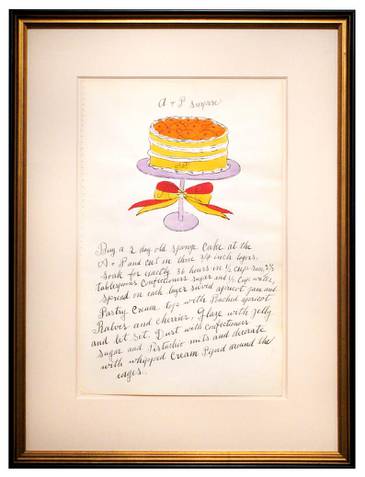 A + P Surprise
Buy a 2 day old sponge cake at the
A + P and cut in three 3/4 inch layers.
Soak for exactly 36 hours in 1/2 cup rum, 2 1/2
tablespoons confectioners sugar and 1/2 cup water,
spread on each layer sieved apricot jam and
Pastry Cream. top with Poached apricot
Halves and cherries, Glaze with Jelly
and let Set. Dust with confectioners
Sugar and Pistachio nuts and decorate
with whipped Cream Piped around the
edges.